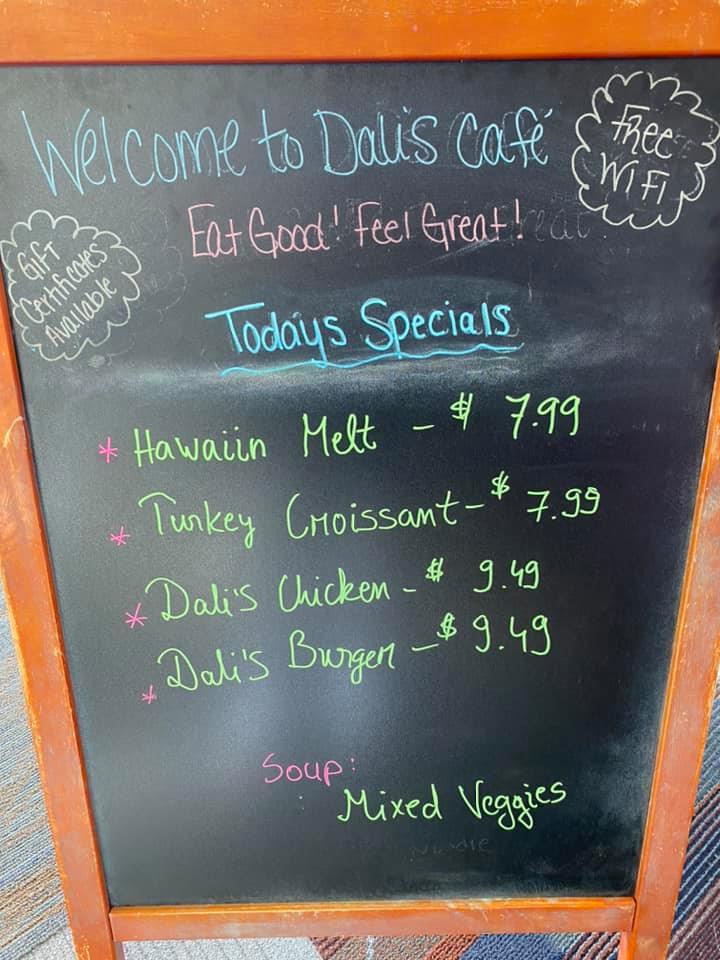 Welcome to Dali's Café
Free
WiFi
Eat Good! Feel Great!
Gift
Certificates
Available
Todays Specials
* Hawaiin Melt - $ 7.99
* Turkey Croissant - $ 7.99
* Dali's Chicken - $ 9.49
* Dali's Burger - $ 9.49
Soup:
Mixed Veggies